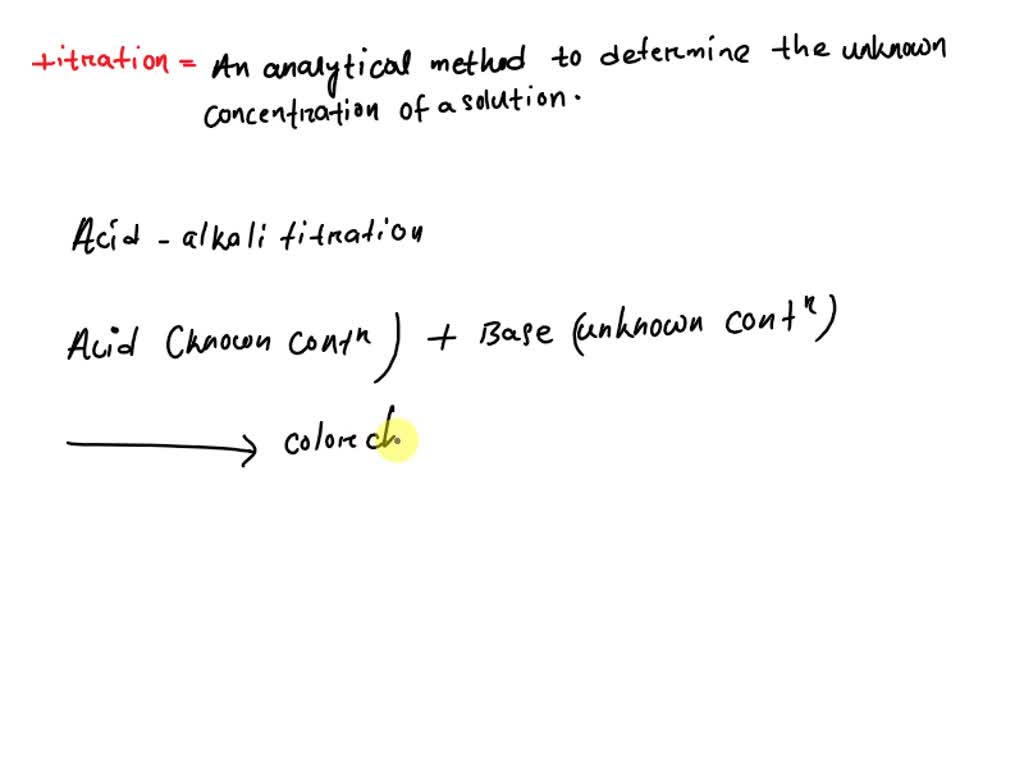 titration = An analytical method to determine the unknown
concentration of a solution.
Acid - alkali titration
Acid (known contn) + Base (unknown contn)
→ colore ch